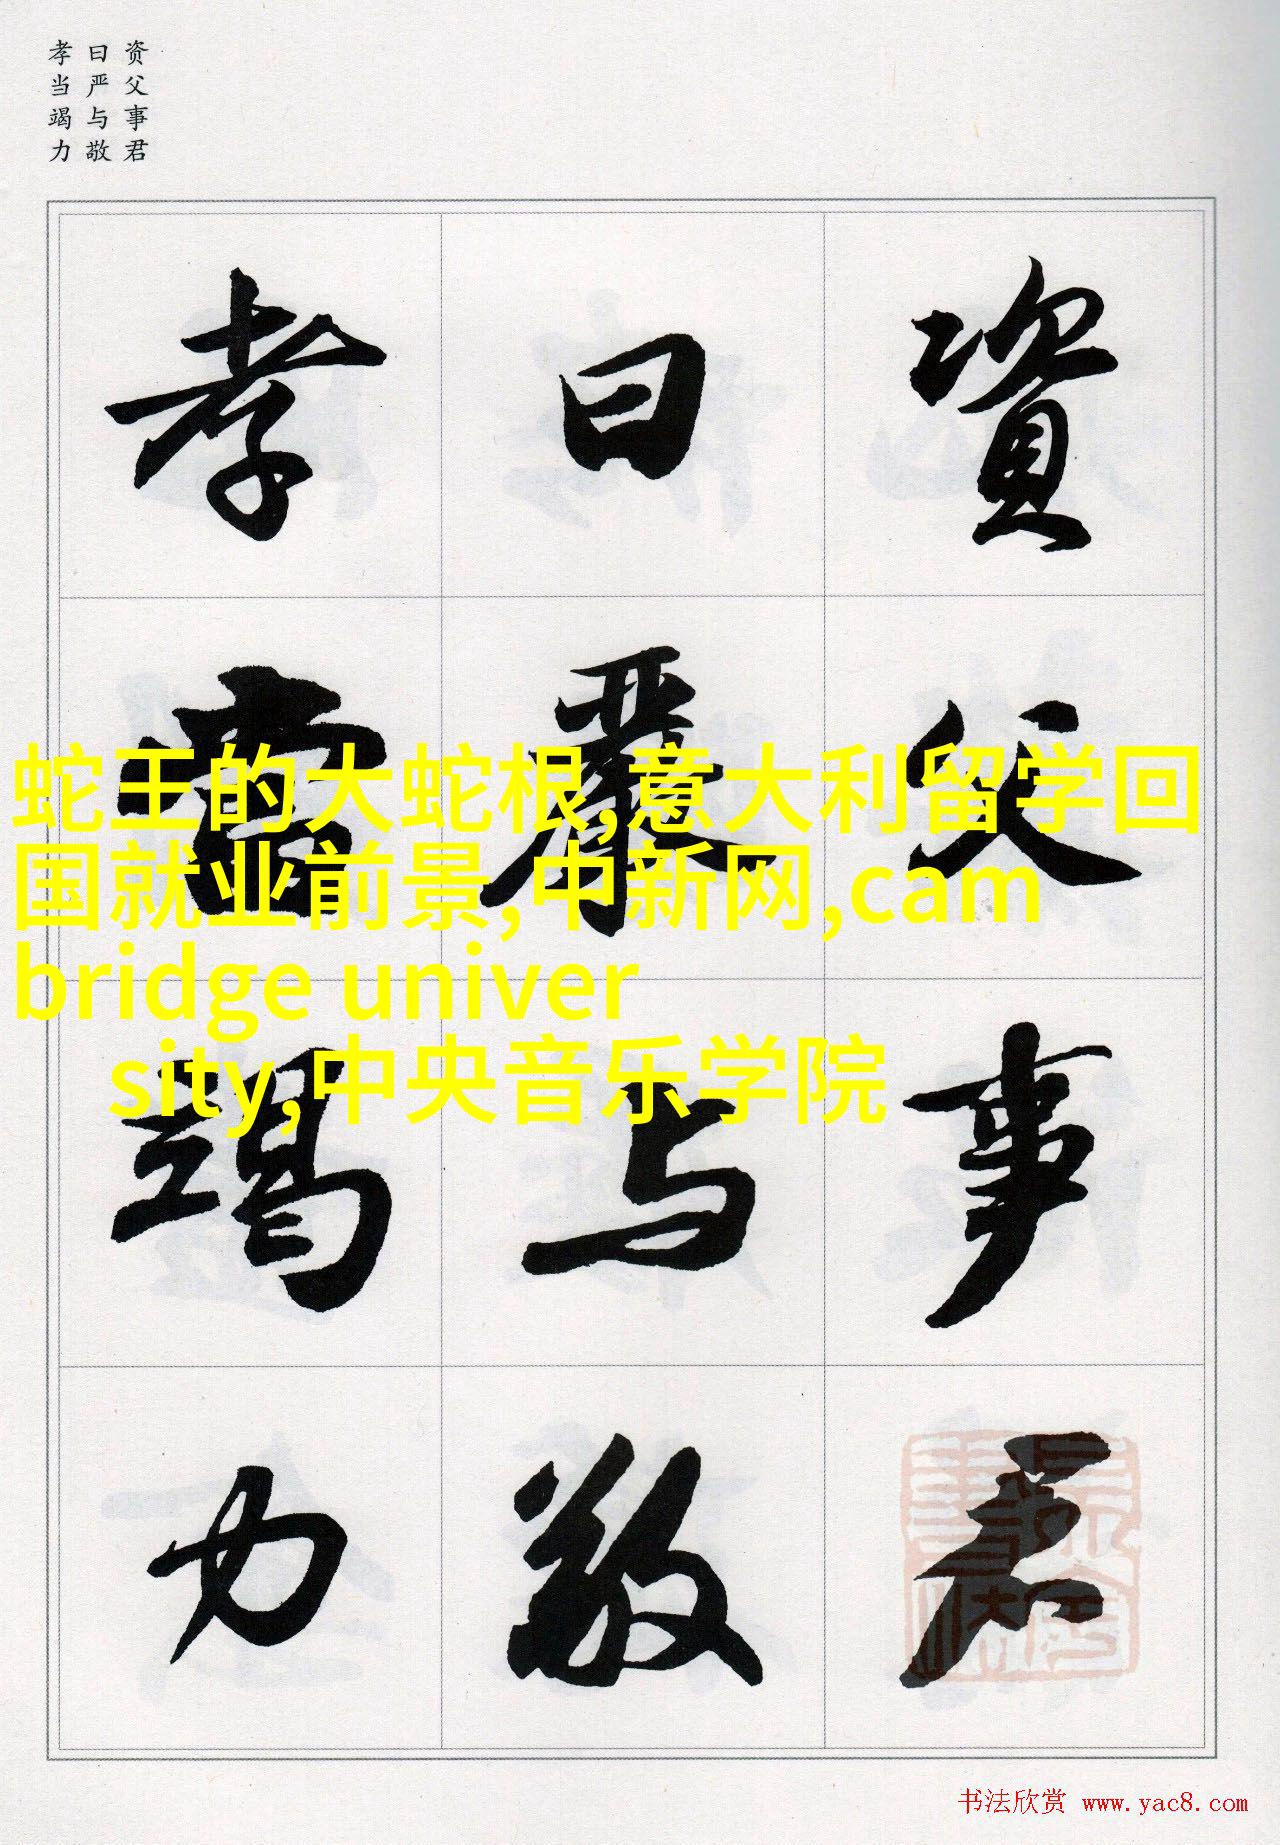 资父事君
曰严与敬
孝当竭力
資父事君
曰嚴与敬
孝當竭力
蛇王的大蛇根,意大利留学回
国就业前景,中新网,cam
bridge univer
sity,中央音乐学院
书法欣赏 www.yac8.com